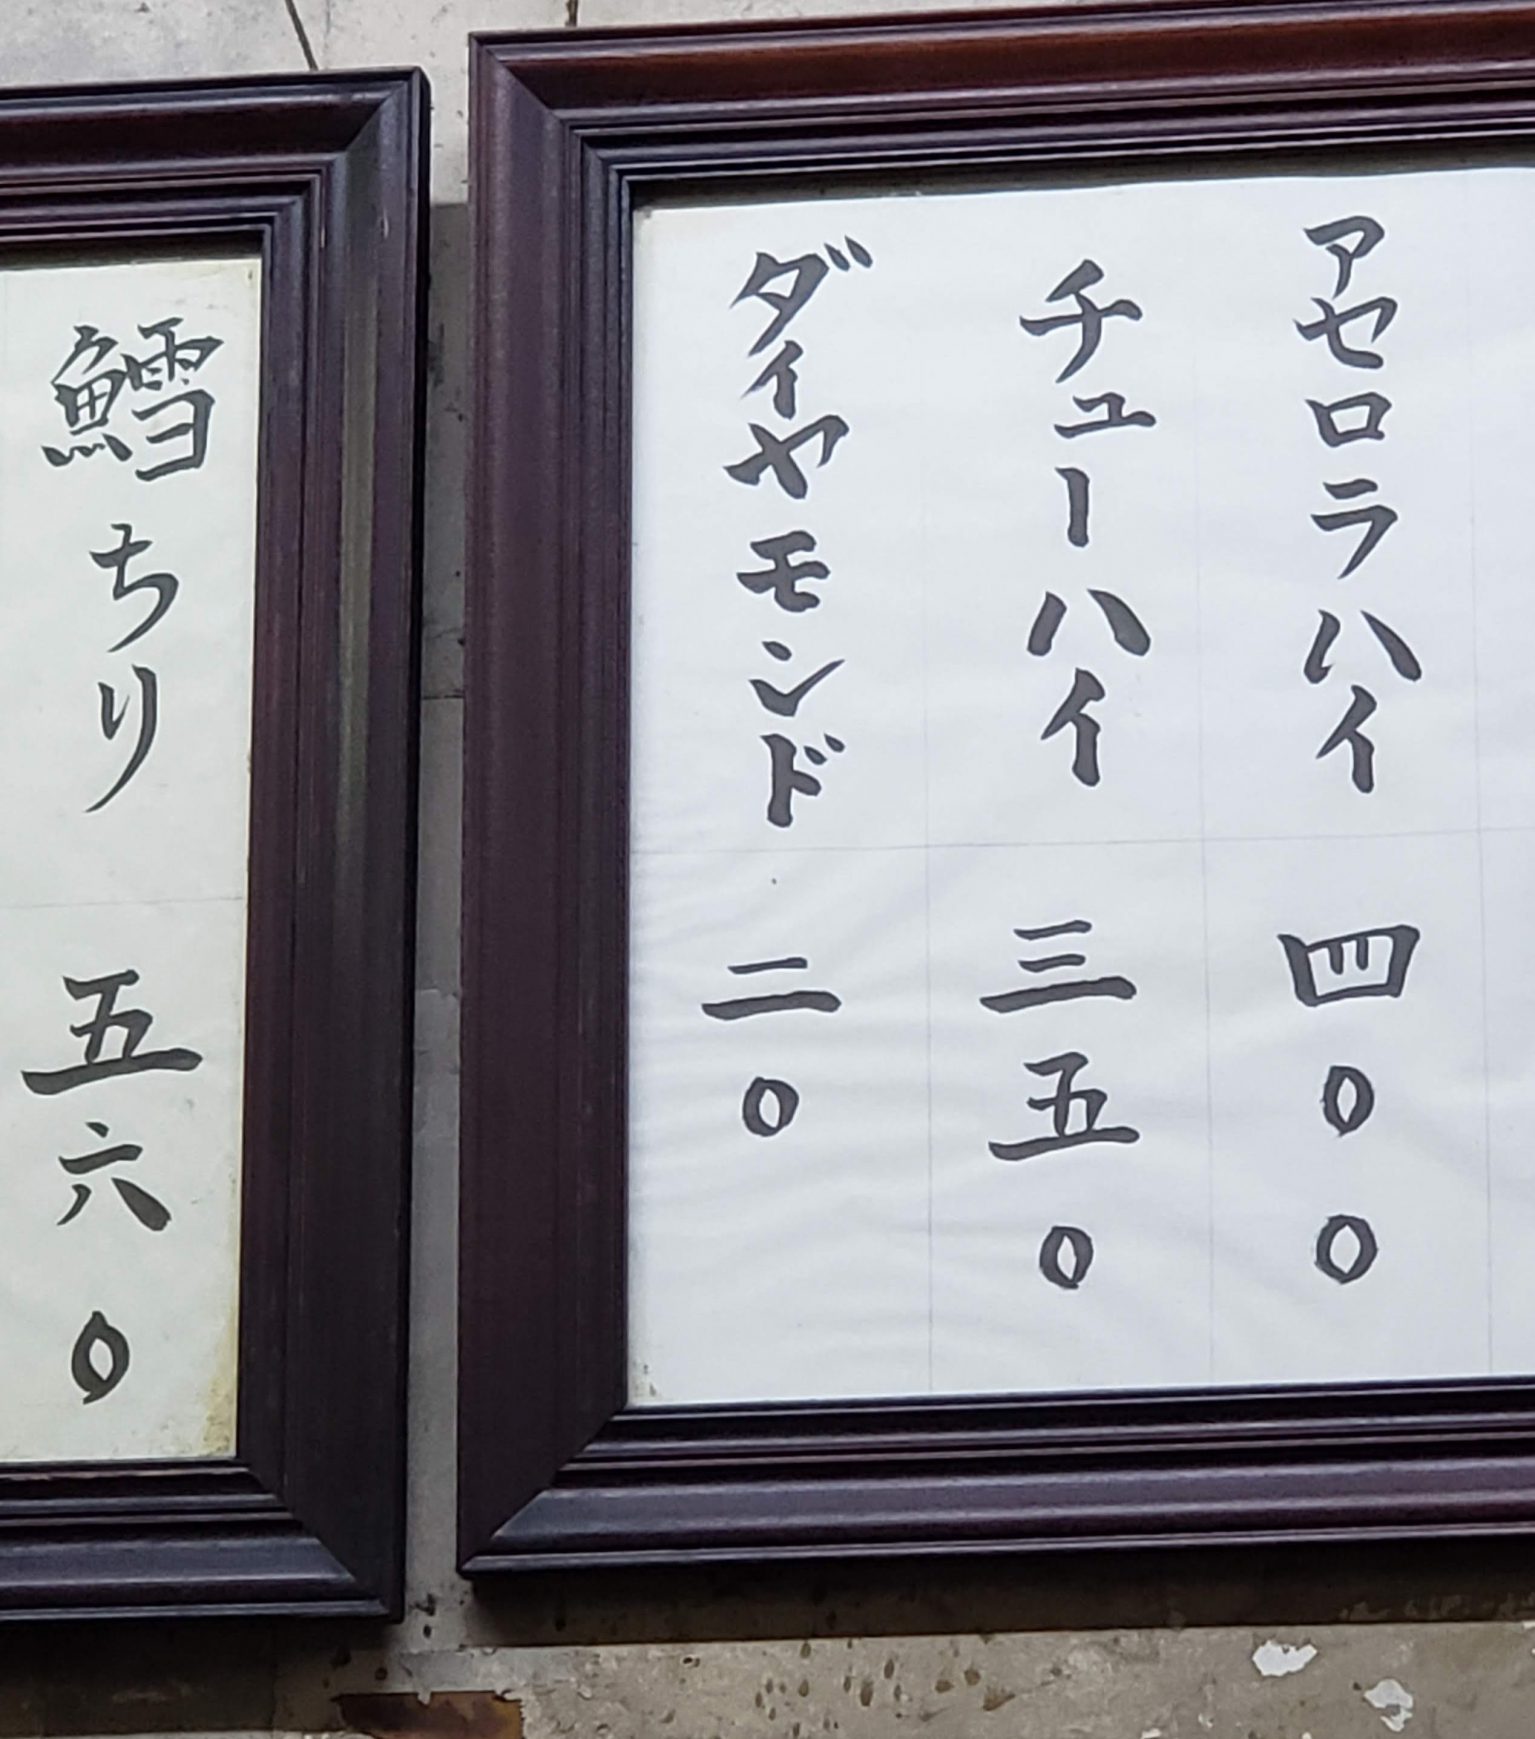 アセロラハイ 四〇〇
チューハイ 三五〇
ダイヤモンド 二〇
鱈ちり 五六〇